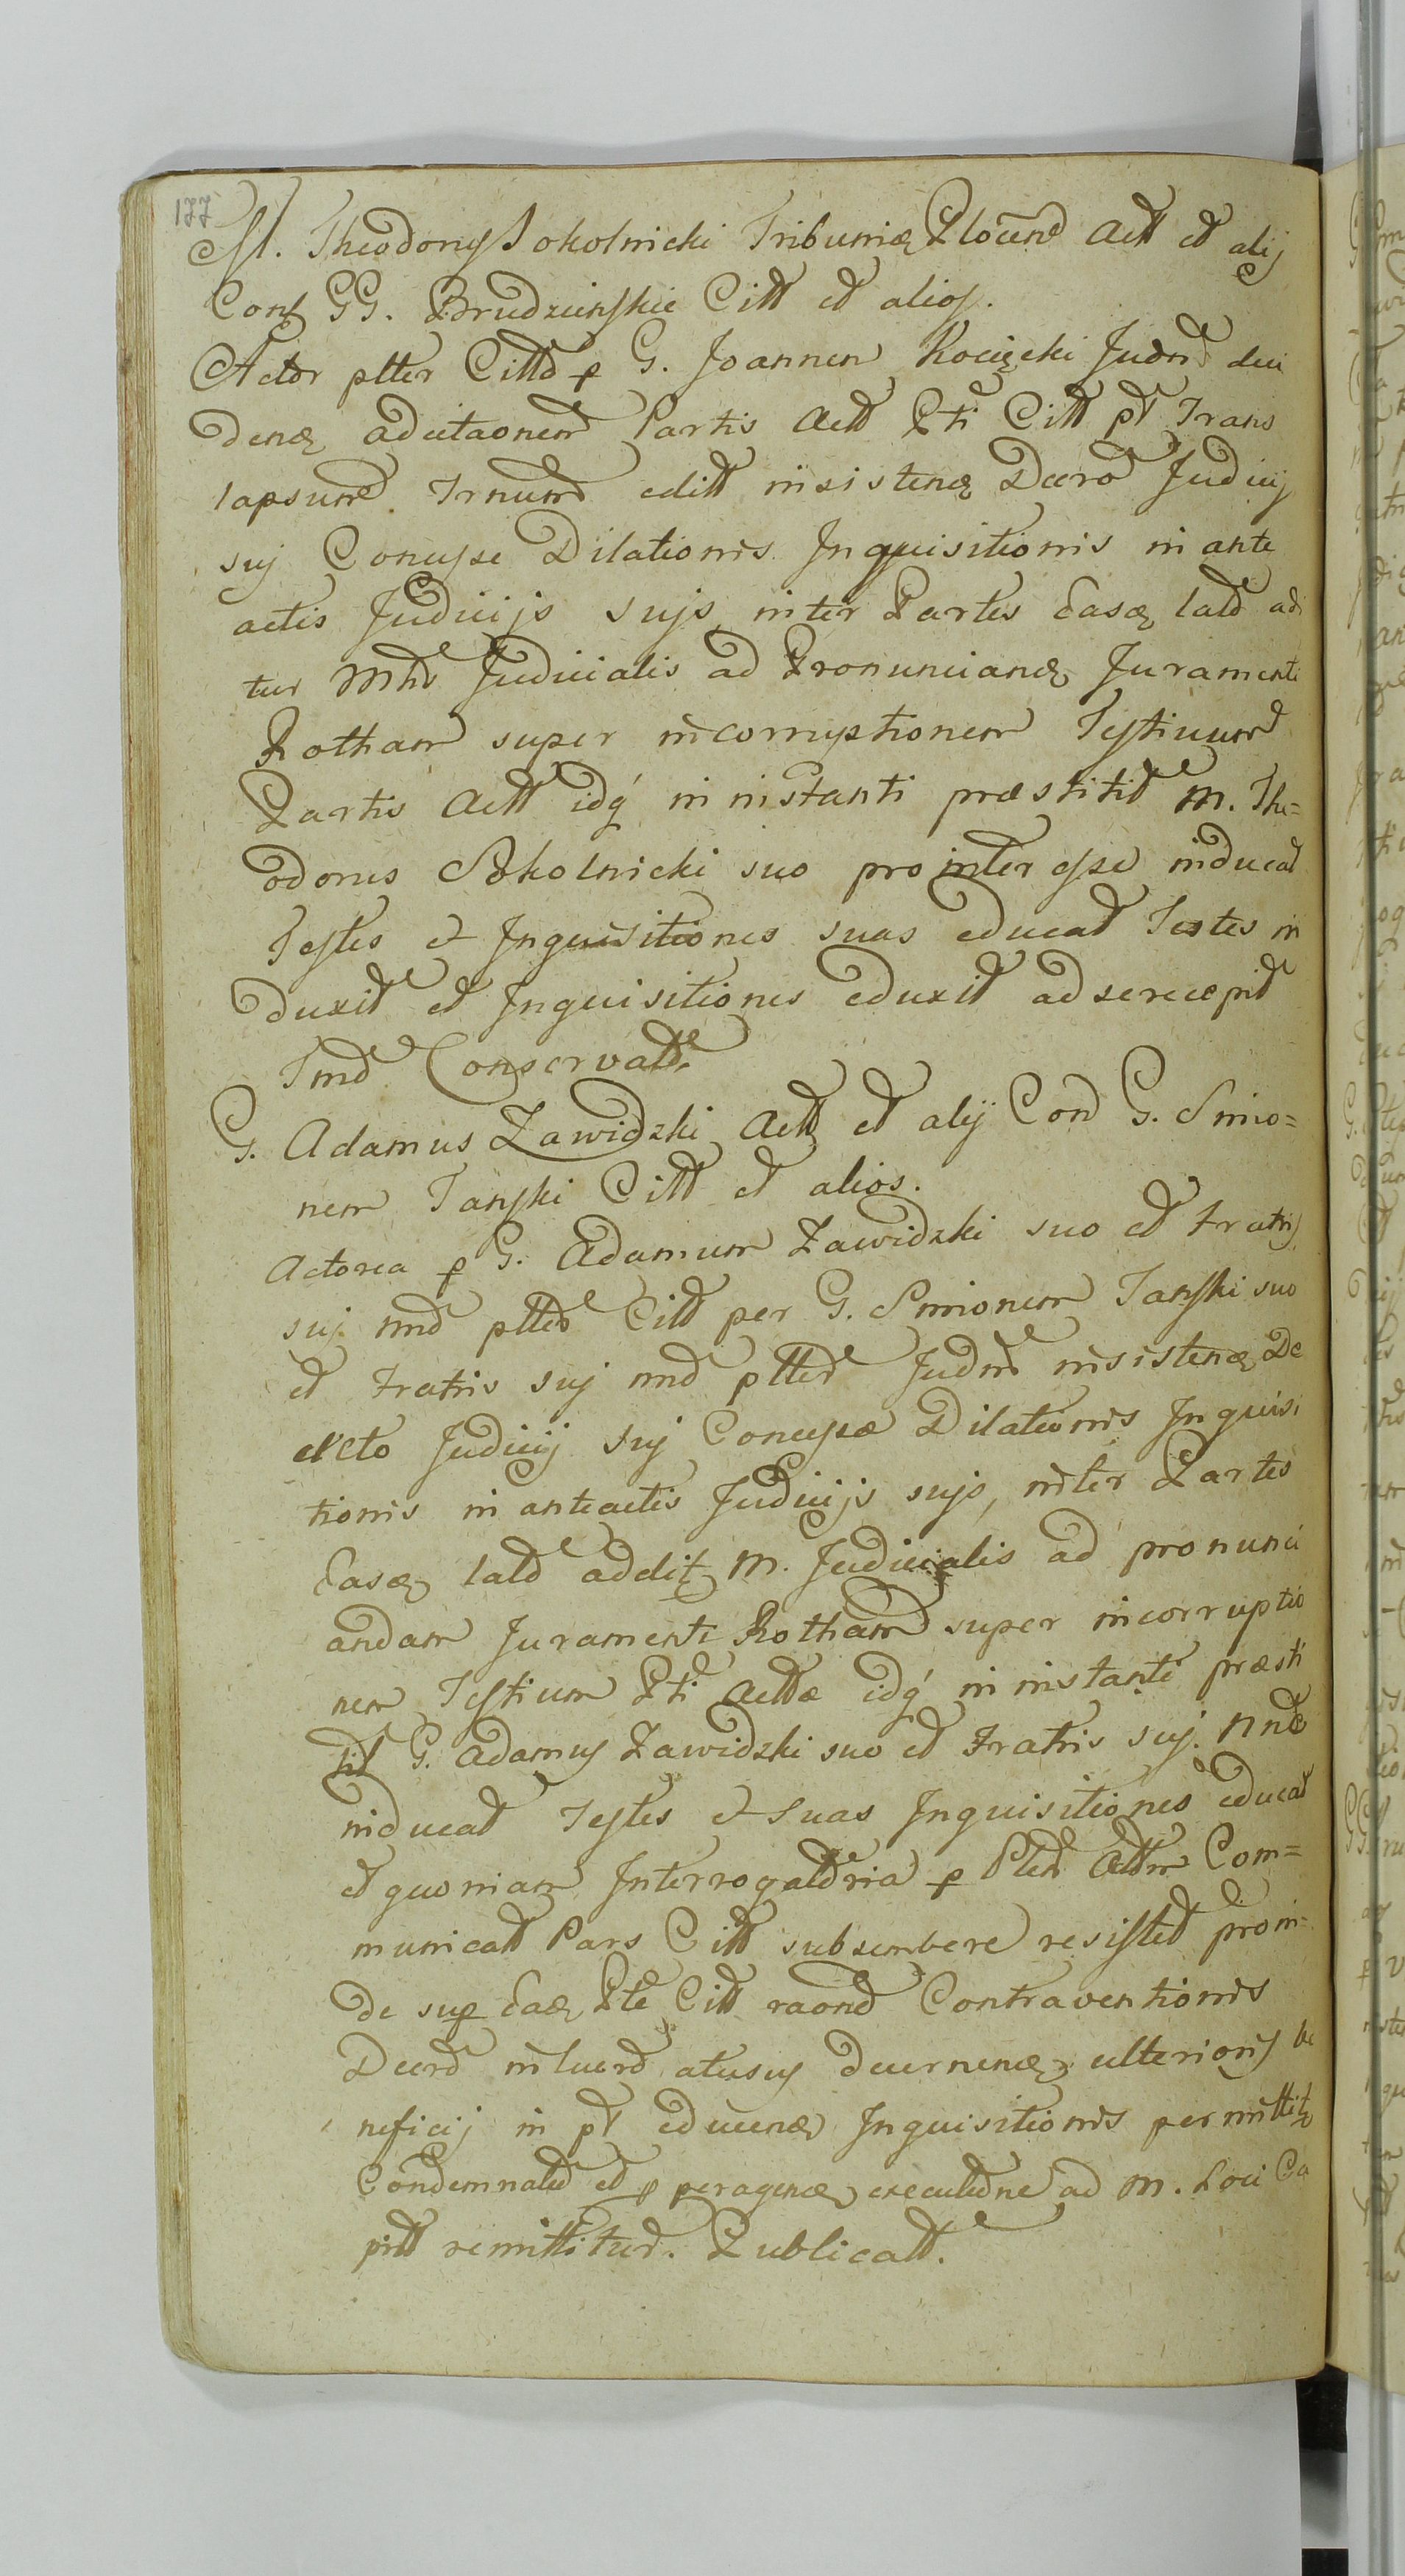 177
M. Theodorus Sokolnicki Tribunię Plocend Actt et alij
Cons GG. Brudzinskie Citt et alios.
Actor ptter Cittd p G. Joannem Kocięcki Judm deci
denę adcitaonem Partis Actt Pti Citt pt Trans
lapsum Trnum editt insistenę Decro Judicij
suj Concessæ Dilationis Inquisitionis in ante
actis Judicijs sujs, inter Partes Easę latd adi
tur Mnd Judicialis ad Pronuncianę Juramenti
Rotham super incorruptionem Testiuum
Partis Actt idq́ in instanti præstitit M. The=
odorus Sokolnicki suo pro interesse inducat
Testes et Inquisitiones suas educat Testes in
duxit et Inquisitiones eduxit ad se recepit
Tmd Conservatt.
G. Adamus Zawidzki Actt et alij Con G. Simo=
nem Tanski Citt et alios.
Actorea p G. Adamum Zawidzki suo et Fratris
suj nnd ptted Citt per G. Simonem Tanski suo
et Fratris suj nnd ptted Judm insistenę De
creto Judicij suj Concessæ Dilationis Inquisi
tionis in anteactis Judicijs sujs, inter Partes
Easę latd addit M. Judicialis ad pronunci
andam Juramenti Rotham super incorruptio
nem Testium Pti Acttæ idq́ in instanti præsti
tit G. Adamus Zawidzki suo et Fratris suj. nnd
inducat Testes et suas Inquisitiones educat
et quoniam Interrogatoria p Ptem Acttm Com=
municatt Pars Citt subscribere resistet proin=
de sup Eaę Pte Citt raond Contraventionis
Decrd abusus decernenę ulterioris be
neficij in pt educenę Inquisitionis permittit
Condemnatd et p peragenę executdne ad M. Loci Ca
pitt remittitur. Publicatt.